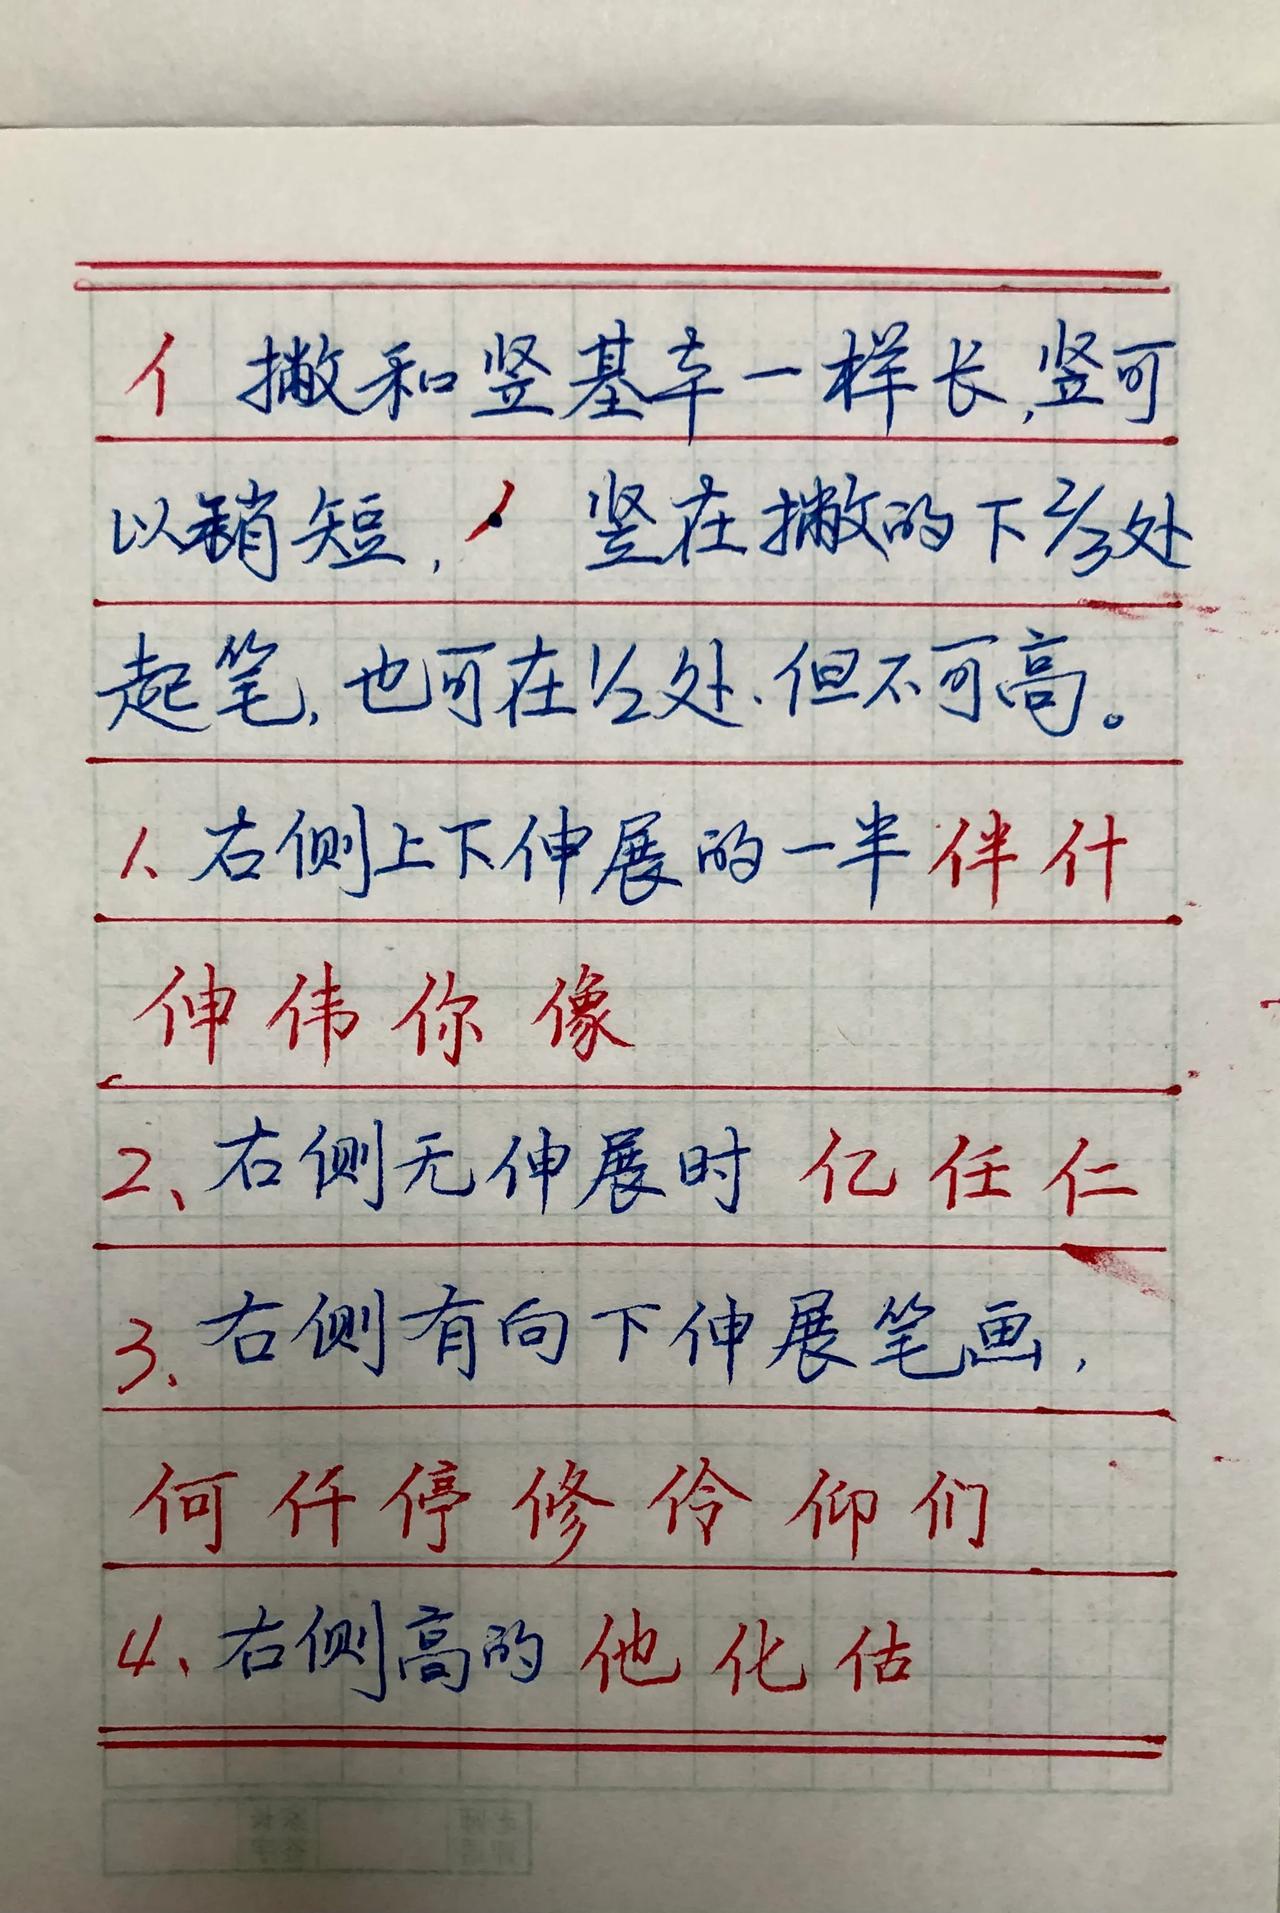 亻 撇和竖基本一样长,竖可
以稍短, 丿 竖在撇的下2/3处
起笔,也可在1/2处.但不可高。
1、右侧上下伸展的一半 伴 什
伸 伟 你 像
2、右侧无伸展时 亿 任 仁
3、右侧有向下伸展笔画,
何 仟 停 修 伶 仰 们
4、右侧高的 他 化 估